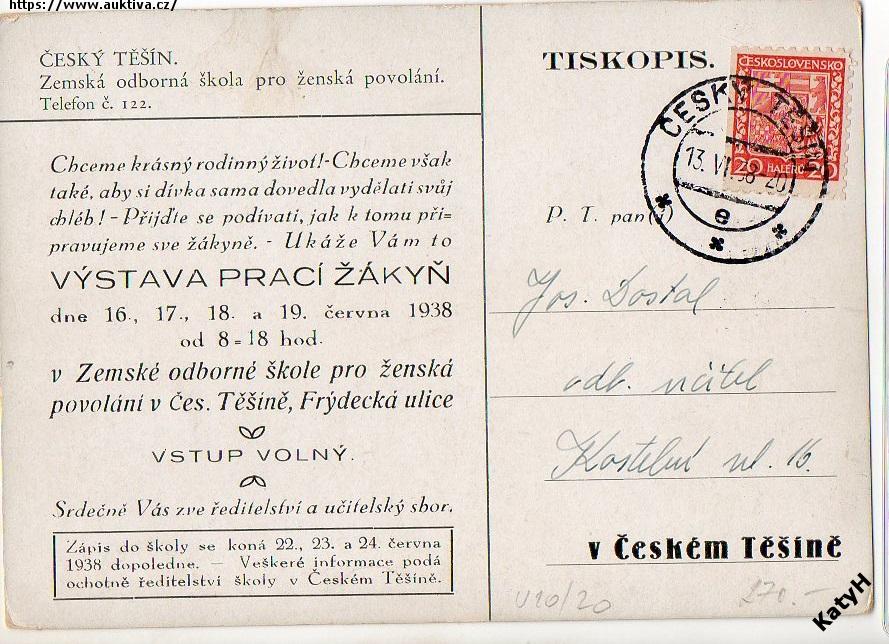 https://www.auktiva.cz/
ČESKÝ TĚŠÍN.
Zemská odborná škola pro ženská povolání.
Telefon č. 122.
Chceme krásný rodinný život!-Chceme však
také, aby si dívka sama dovedla vydělati svůj
chléb! - Přijďte se podívati, jak k tomu při=
pravujeme sve žákyně. - Ukáže Vám to
VÝSTAVA PRACÍ ŽÁKYŇ
dne 16., 17., 18. a 19. června 1938
od 8=18 hod.
v Zemské odborné škole pro ženská
povolání v Čes. Těšíně, Frýdecká ulice
VSTUP VOLNÝ.
Srdečně Vás zve ředitelství a učitelský sbor.
Zápis do školy se koná 22., 23. a 24. června
1938 dopoledne. — Veškeré informace podá
ochotně ředitelství školy v Českém Těšíně.
TISKOPIS.
ČESKOSLOVENSKO
20 HALÉŘŮ 20
ČESKÝ TĚŠÍN
13. VI. 38 - 20
e
P. T. pan(í)
Jos. Dostal
odb. učitel
Kostelní ul. 16.
v Českém Těšíně
U20/20
270.-
KatyH